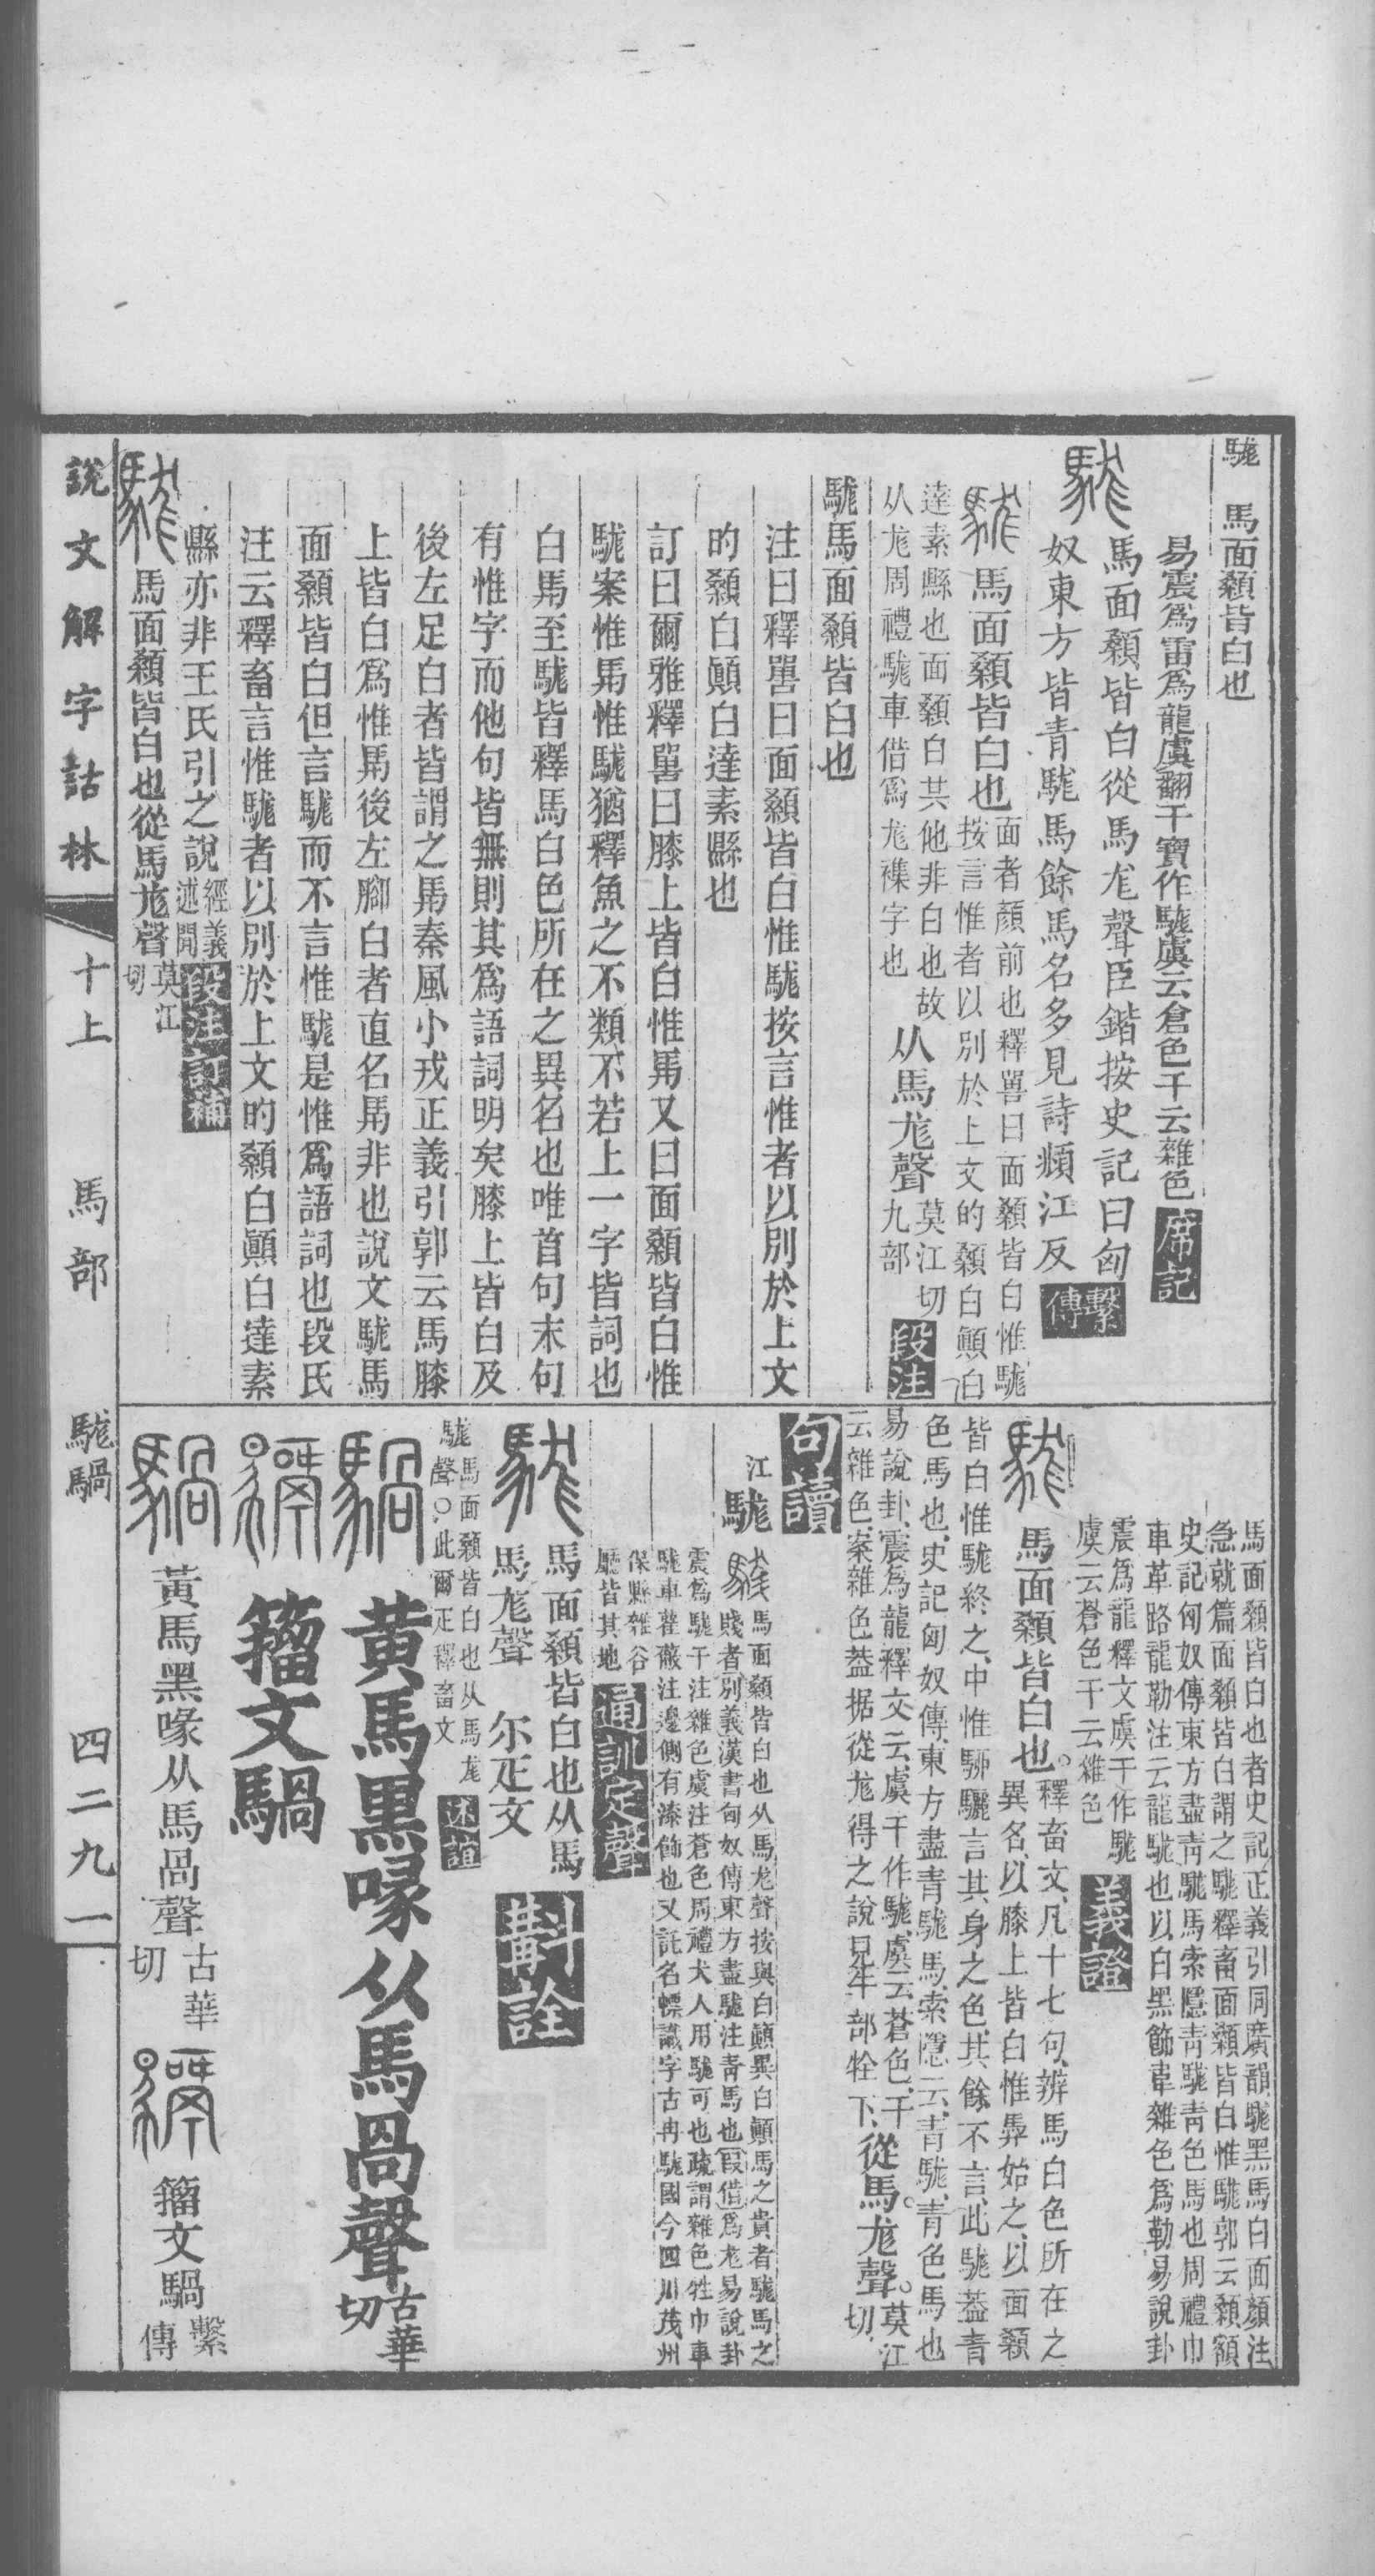 駹　馬面顙皆白也
易震爲雷爲龍虞翻干寶作駹虞云倉色干云雜色席記
馬面顙皆白從馬尨聲臣鍇按史記曰匈
奴東方皆青駹馬餘馬名多見詩頻江反繫傳
馬面顙皆白也面者顏前也釋嘼曰面顙皆白惟駹
按言惟者以別於上文的顙白顚白
達素縣也面顙白其他非白也故从馬尨聲莫江切
从尨周禮駹車借爲尨襍字也九部段注
駹馬面顙皆白也
注曰釋嘼曰面顙皆白惟駹按言惟者以別於上文
的顙白顚白達素縣也
訂曰爾雅釋嘼曰膝上皆白惟馵又曰面顙皆白惟
駹案惟馵惟駹猶釋魚之不類不若上一字皆詞也
白馵至駹皆釋馬白色所在之異名也唯首句末句
有惟字而他句皆無則其爲語詞明矣膝上皆白及
後左足白者皆謂之馵秦風小戎正義引郭云馬膝
上皆白爲惟馵後左腳白者直名馵非也說文駹馬
面顙皆白但言駹而不言惟駹是惟爲語詞也段氏
注云釋畜言惟駹者以別於上文的顙白顚白達素
縣亦非王氏引之說經義述聞段注訂補
馬面顙皆白也從馬尨聲莫江切
馬面顙皆白也者史記正義引同廣韻駹黑馬白面顏注
急就篇面顙皆白謂之駹釋畜面顙皆白惟駹郭云顙額
史記匈奴傳東方盡靑駹馬索隱靑駹靑色馬也周禮巾
車革路龍勒注云龍駹也以白黑飾韋雜色爲勒易說卦
震爲龍釋文虞干作駹
虞云蒼色干云雜色義證
馬面顙皆白也。釋畜文、凡十七句、辨馬白色所在之
異名、以膝上皆白惟馵始之、以面顙
皆白惟駹終之、中惟騂驪言其身之色、其餘不言、此駹蓋青
色馬也、史記匈奴傳、東方盡青駹馬、索隱云、青駹、青色馬也
易說卦、震爲龍、釋文云、虞干作駹、虞云蒼色、干
云雜色、案雜色蓋据從尨得之、說見牛部牷下、從馬。尨聲。莫江切
句讀
駹　馬面顙皆白也从馬尨聲按與白顚異白顚馬之貴者駹馬之
江　賤者別義漢書匈奴傳東方盡駹注靑馬也叚借爲尨易說卦
震爲駹干注雜色虞注蒼色周禮犬人用駹可也疏謂雜色牲巾車
駹車雚蔽注邊側有漆飾也又託名幖識字古冉駹國今四川茂州
保縣雜谷
廳皆其地通訓定聲
馬面顙皆白也从馬
馬尨聲　尔疋文　斠詮
駹馬面顙皆白也从馬尨
聲○此爾疋釋畜文述誼
黃馬黑喙从馬咼聲古華切
籀文騧
黃馬黑喙从馬咼聲古華切　籀文騧繫傳
說文解字詁林　十上　馬部　駹騧　四二九一